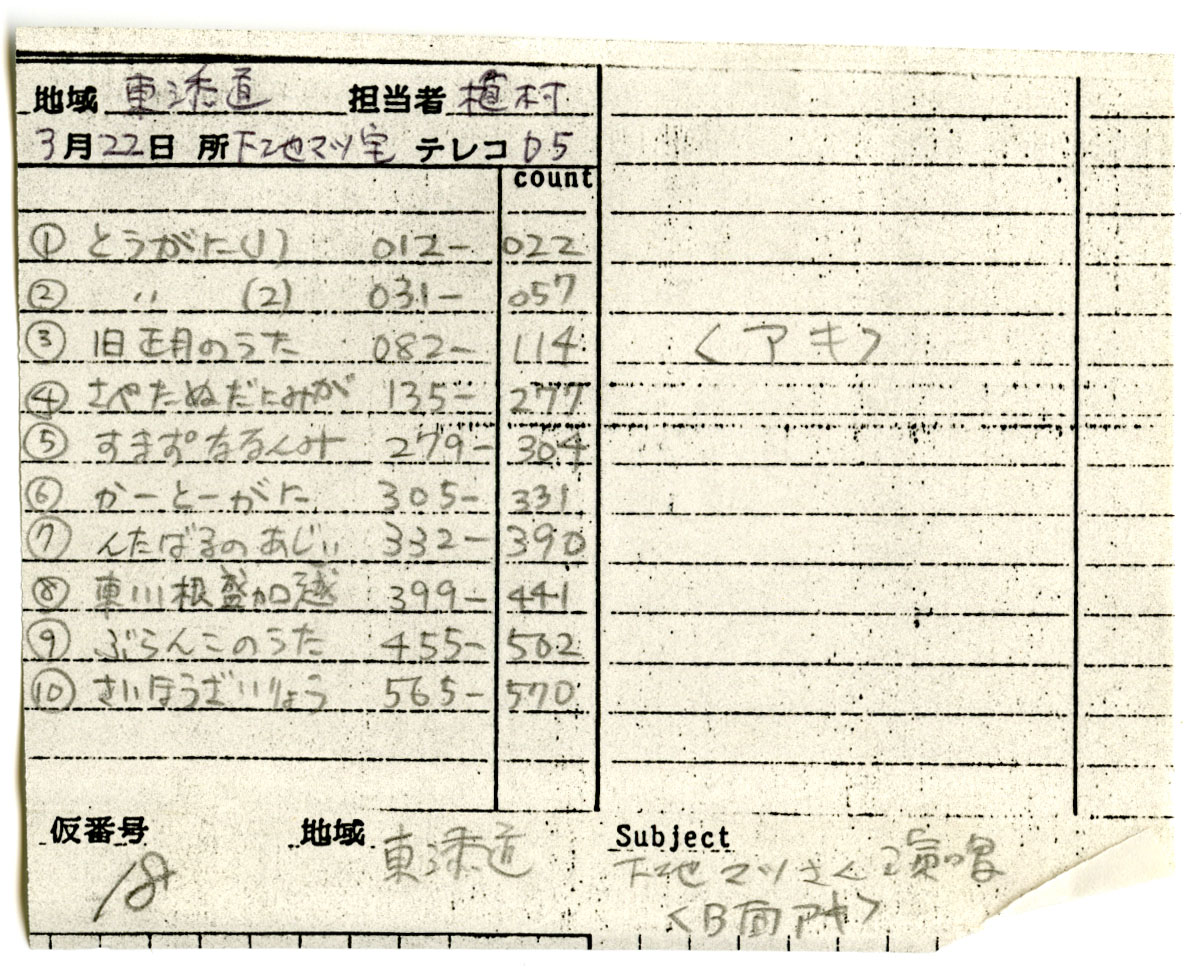 地域 東添道 担当者 植村
3月22日 所 下地マツ宅 テレコ D5
count
① とうがに(1) 012- 022
② 〃 (2) 031- 057
③ 旧正月のうた 082- 114
④ さぺたぬだにめが 135- 277
⑤ すまずなるんみ 279- 304
⑥ かーとーがに 305- 331
⑦ んたばるのあじぃ 332- 390
⑧ 東川根盛加越 399- 441
⑨ ぶらんこのうた 455- 502
⑩ さいほうざいりょう 565- 570
<アキ>
仮番号 18
地域 東添道
Subject
下地マツさん
<B面アキ>